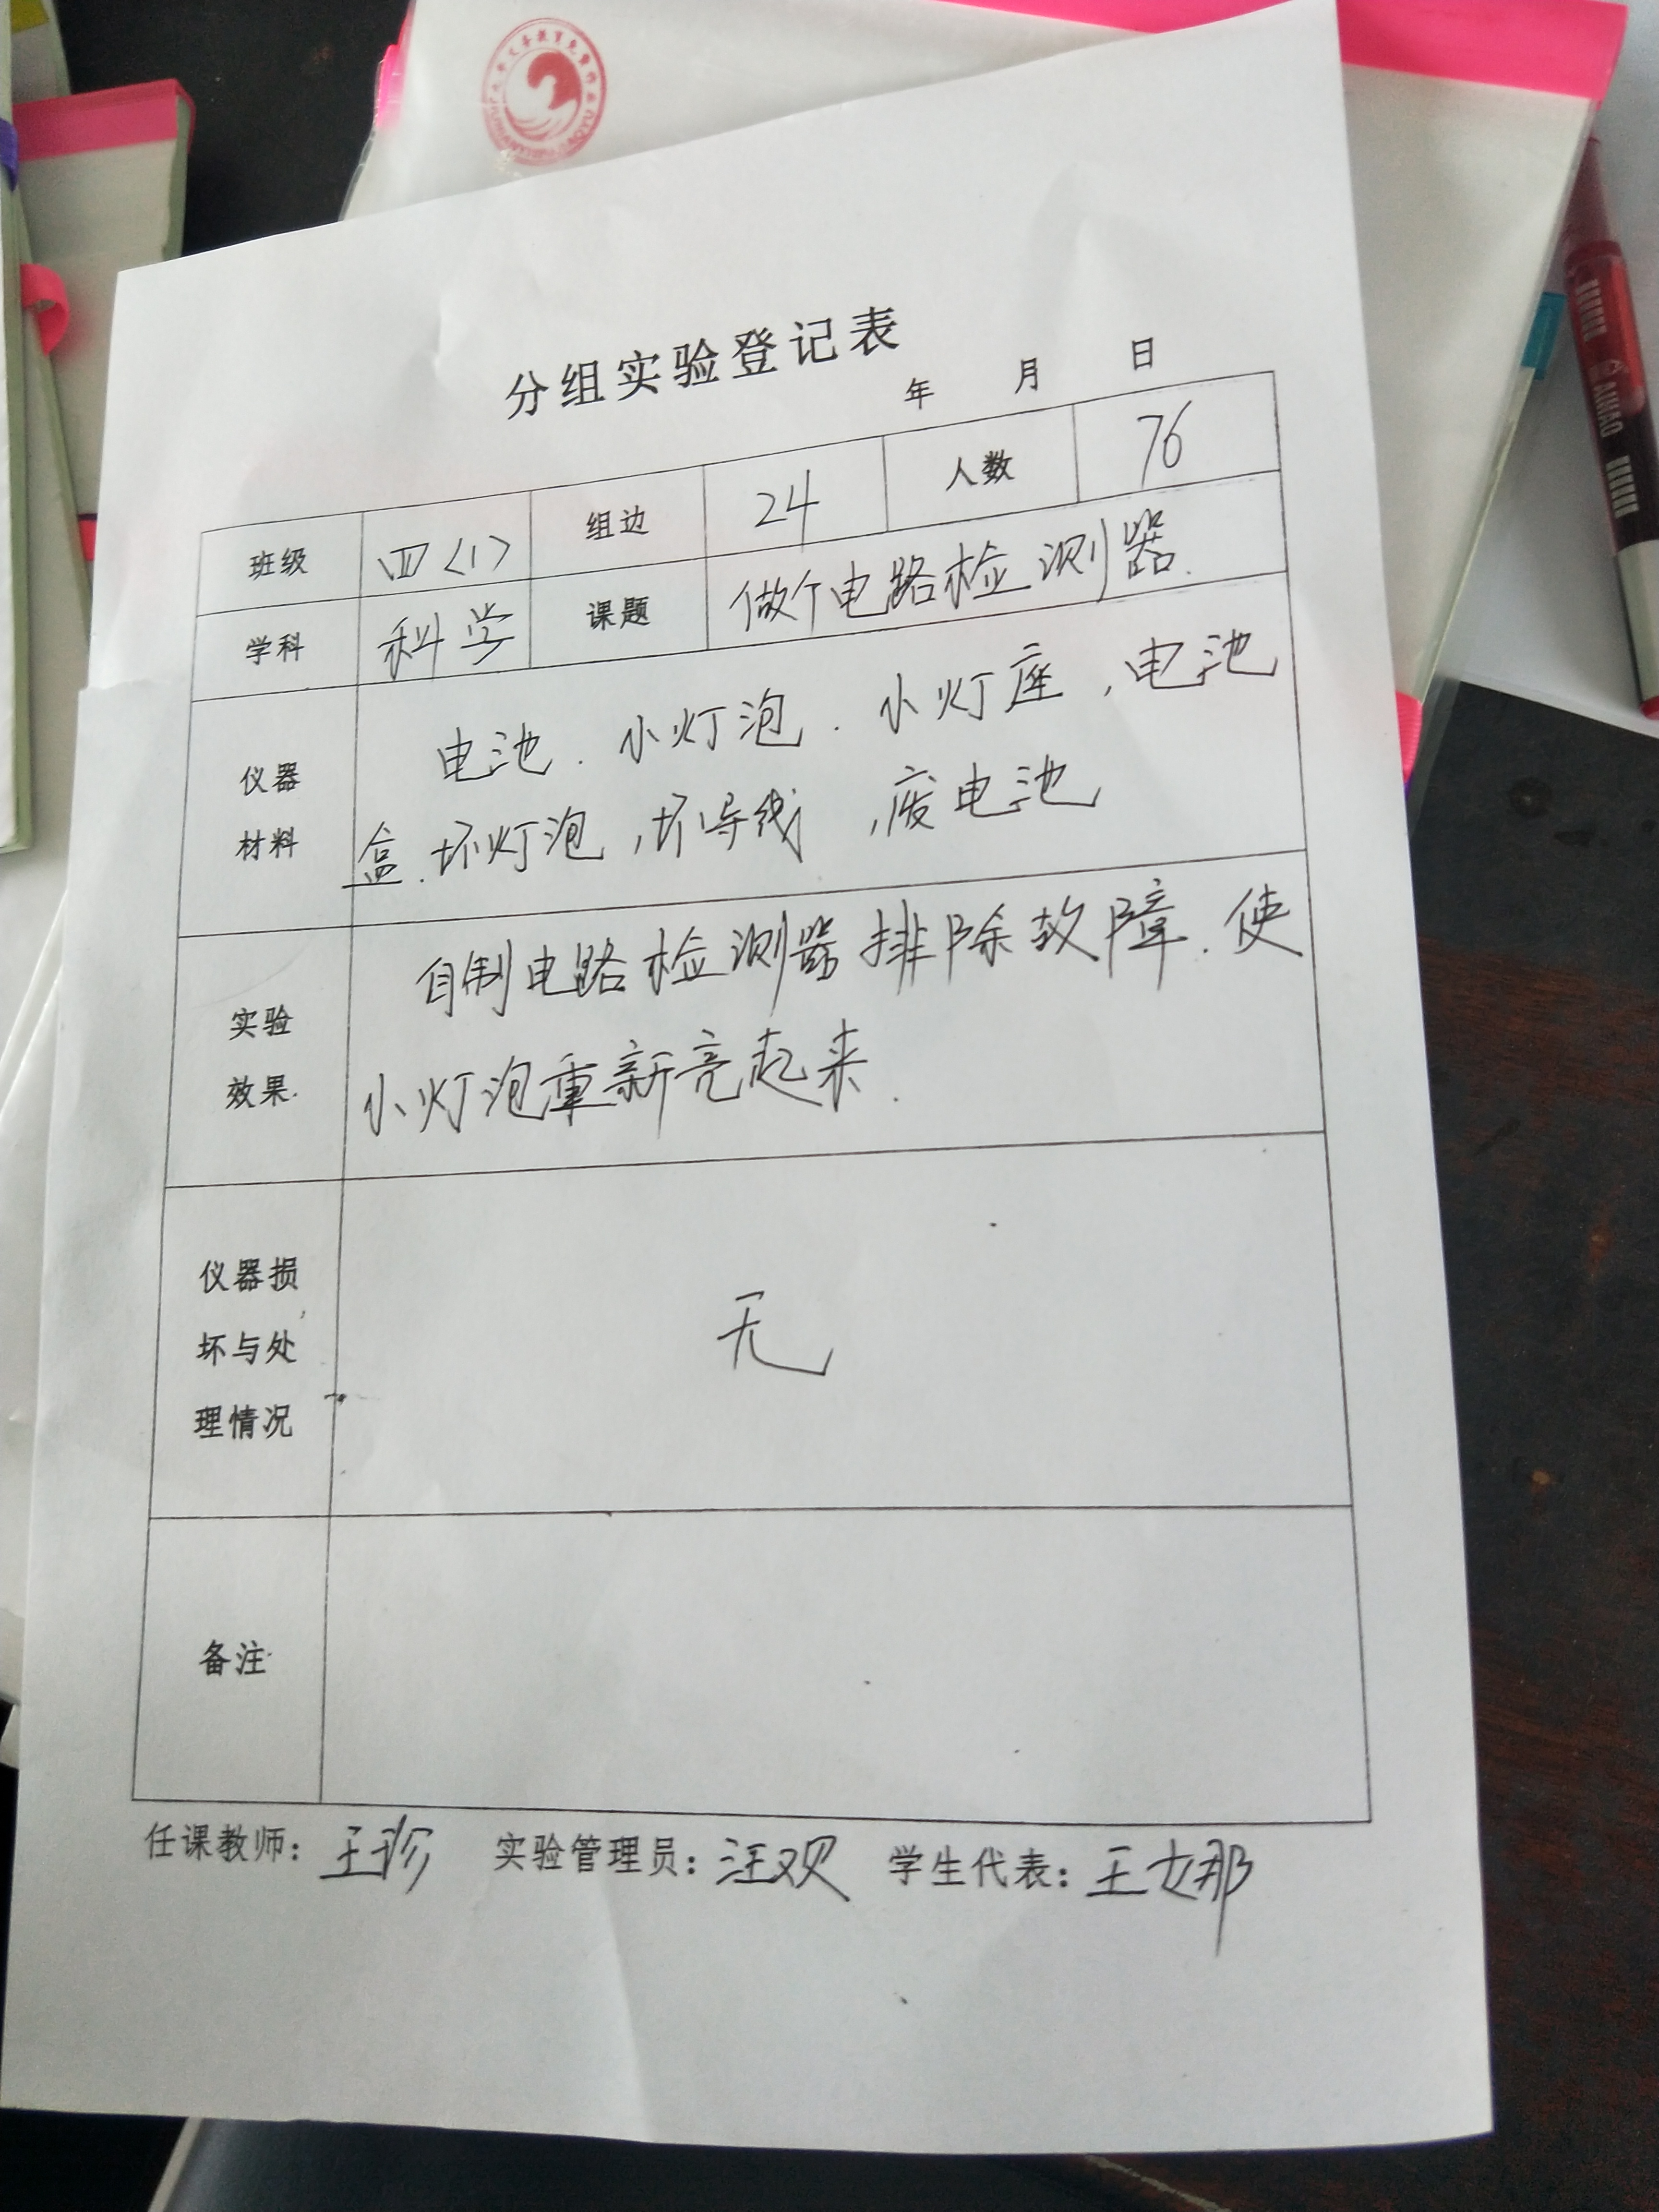 分组实验登记表
年 月 日
班级 四〈1〉 组边 24 人数 76
学科 科学 课题 做个电路检测器.
仪器
材料
电池. 小灯泡. 小灯座, 电池
盒. 坏灯泡, 坏导线, 废电池
实验
效果.
自制电路检测器排除故障. 使
小灯泡重新亮起来.
仪器损
坏与处
理情况
无
备注
任课教师: 王珍 实验管理员: 汪双 学生代表: 王
AIHAO